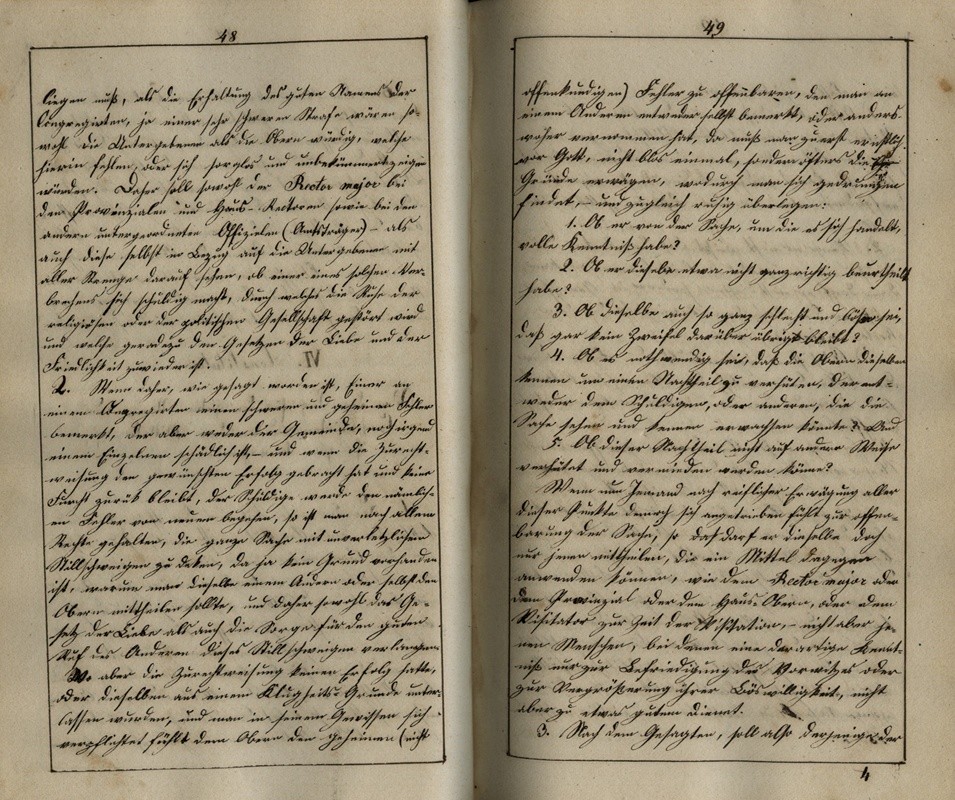 48
liegen muß, als die Erhaltung des guten Namens der
Congregirten, ja einer sehr schweren Strafe wären so-
wohl die Untergebenen als die Obern würdig, welche
hierin fehlen, oder sich sorglos und unbekümmert zeigen
würden. Daher soll sowohl der Rector major bei
den Provinzialen und Haus-Rectoren sowie bei den
andern untergeordneten Offizialen (Amtsträger) – als
auch diese selbst in Bezug auf die Untergebenen mit
aller Strenge darauf sehen, ob einer eines solchen Ver-
brechens sich schuldig macht, durch welches die Ruhe der
religiösen oder der politischen Gesellschaft gestört wird
und welche geradezu den Gesetzen der Liebe und der
Friedlichkeit zuwider ist.
2. Wenn daher, wie gesagt worden ist, Einer an
einem Congregirten einen schweren und geheimen Fehler
bemerkt, der aber weder der Gemeinde, noch irgend
einem Einzelnen schädlich ist, – und wenn die Zurecht-
weisung den gewünschten Erfolg gebracht hat und keine
Furcht zurück bleibt, der Schuldige werde den nämlich-
en Fehler von neuem begehen, so ist man nach allem
Rechte gehalten, die ganze Sache mit unverletzlichem
Stillschweigen zu decken, da ja kein Grund vorhanden
ist, warum man dieselbe einem Andern oder selbst den
Obern mittheilen sollte, und daher sowohl das Ge-
setz der Liebe als auch die Sorge für den guten
Ruf des Anderen dieses Stillschweigen verlangen.
Wo aber die Zurechtweisung keinen Erfolg hatte,
oder dieselben aus einem Klugheits-Grunde unter-
lassen wurden, und man in seinem Gewissen sich
verpflichtet fühlt dem Obern den geheimen (nicht
49
offenkundigen) Fehler zu offenbaren, den man an
einem Anderen entweder selbst bemerkt, oder anders-
woher vernommen hat, da muß man zuerst ernstlich
vor Gott, nicht blos einmal, sondern öfters die
Gründe erwägen, wodurch man sich gedrungen
findet, – und zugleich ruhig überlegen:
1. Ob er von der Sache, um die es sich handelt,
volle Kenntniß habe?
2. Ob er dieselbe etwa nicht ganz richtig beurtheilt
habe?
3. Ob dieselbe auch so ganz schlecht und böse sei,
daß gar kein Zweifel darüber übrig bleibt?
4. Ob es nothwendig sei, daß die Obern dieselben
kennen um einen Nachtheil zu verhüten, der ent-
weder dem Schuldigen, oder anderen, die die
Sache sehen und kennen erwachsen könnte? Und
5. Ob dieser Nachtheil nicht auf andere Weise
verhütet und vermieden werden könne?
Wenn nun Jemand nach reiflicher Erwägung aller
dieser Punkte dennoch sich angetrieben fühlt zur offen-
barung der Sache, so daß darf er dieselbe doch
nur jenen mittheilen, die ein Mittel dagegen
anwenden können, wie dem Rector major oder
dem Provinzial oder dem Haus-Obern, oder dem
Visitator zur Zeit der Visitation, – nicht aber je-
nen Menschen, bei denen eine derartige Kennt-
niß nur zur Befriedigung des Vorwitzes oder
zur Vergrößerung ihrer Böswilligkeit, nicht
aber zu etwas gutem dienet.
3. Nach dem Gesagten, soll also derjenige der
4